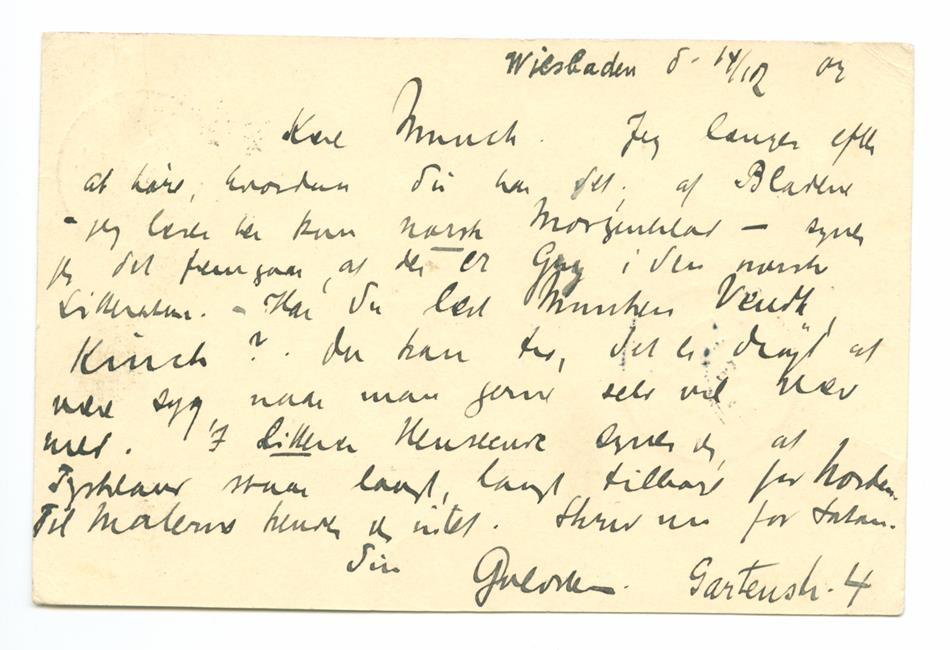 Wiesbaden d. 14/12 02
Kære Munch. Jeg længes efter
at høre, hvordan du har det. af Bladene
- jeg læser her kun norsk Morgenblad - synes
jeg det fremgaar, at der er Gry i den norske
Litteratur. - Har du læst Munchens Vendt,
Kinck? Du kan tro, det er drøjt at
være syg, naar man gerne selv vil være
med. I Litterær Henseende synes jeg, at
Tyskland staar langt, langt tilbage for Norden.
Til Maleriet kender jeg intet. Skriv nu for Satan.
Din
Gartenstr. 4